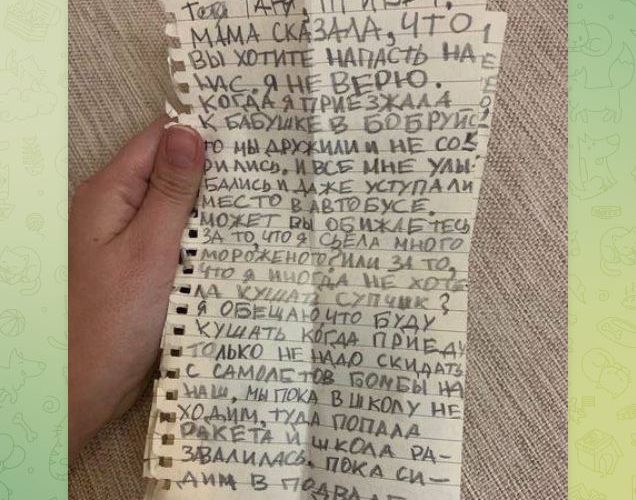 МАМА СКАЗАЛА, ЧТО
ВЫ ХОТИТЕ НАПАСТЬ НА
НАС. Я НЕ ВЕРЮ.
КОГДА Я ПРИЕЗЖАЛА
К БАБУШКЕ В БОБРУЙС
ТО МЫ ДРУЖИЛИ И НЕ СО
РИЛИСЬ. И ВСЕ МНЕ УЛЫ-
БАЛИСЬ И ДАЖЕ УСТУПАЛИ
МЕСТО В АВТОБУСЕ.
МОЖЕТ ВЫ ОБИЖАЕТЕСЬ
ЗА ТО, ЧТО Я СЬЕЛА МНОГО
МОРОЖЕНОГО? ИЛИ ЗА ТО,
ЧТО Я ИНОГДА НЕ ХОТЕ
ЛА КУШАТЬ СУПЧИК?
Я ОБЕЩАЮ, ЧТО БУДУ
КУШАТЬ КОГДА ПРИЕДУ
ТОЛЬКО НЕ НАДО СКИДАТЬ
С САМОЛЕТОВ БОМБЫ НА
НАШ, МЫ ПОКА В ШКОЛУ НЕ
ХОДИМ, ТУДА ПОПАЛА
РАКЕТА И ШКОЛА РА-
ЗВАЛИЛАСЬ. ПОКА СИ-
ДИМ В